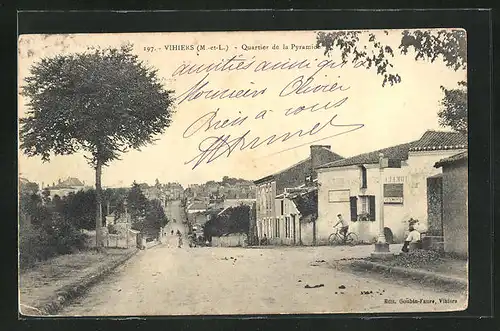 197. - VIHIERS (M.-et-L.) - Quartier de la Pyramide
amitiés ainsi qu'à
Monsieur Olivier
Bien à vous
Armel
Edit. Goubin-Faure, Vihiers